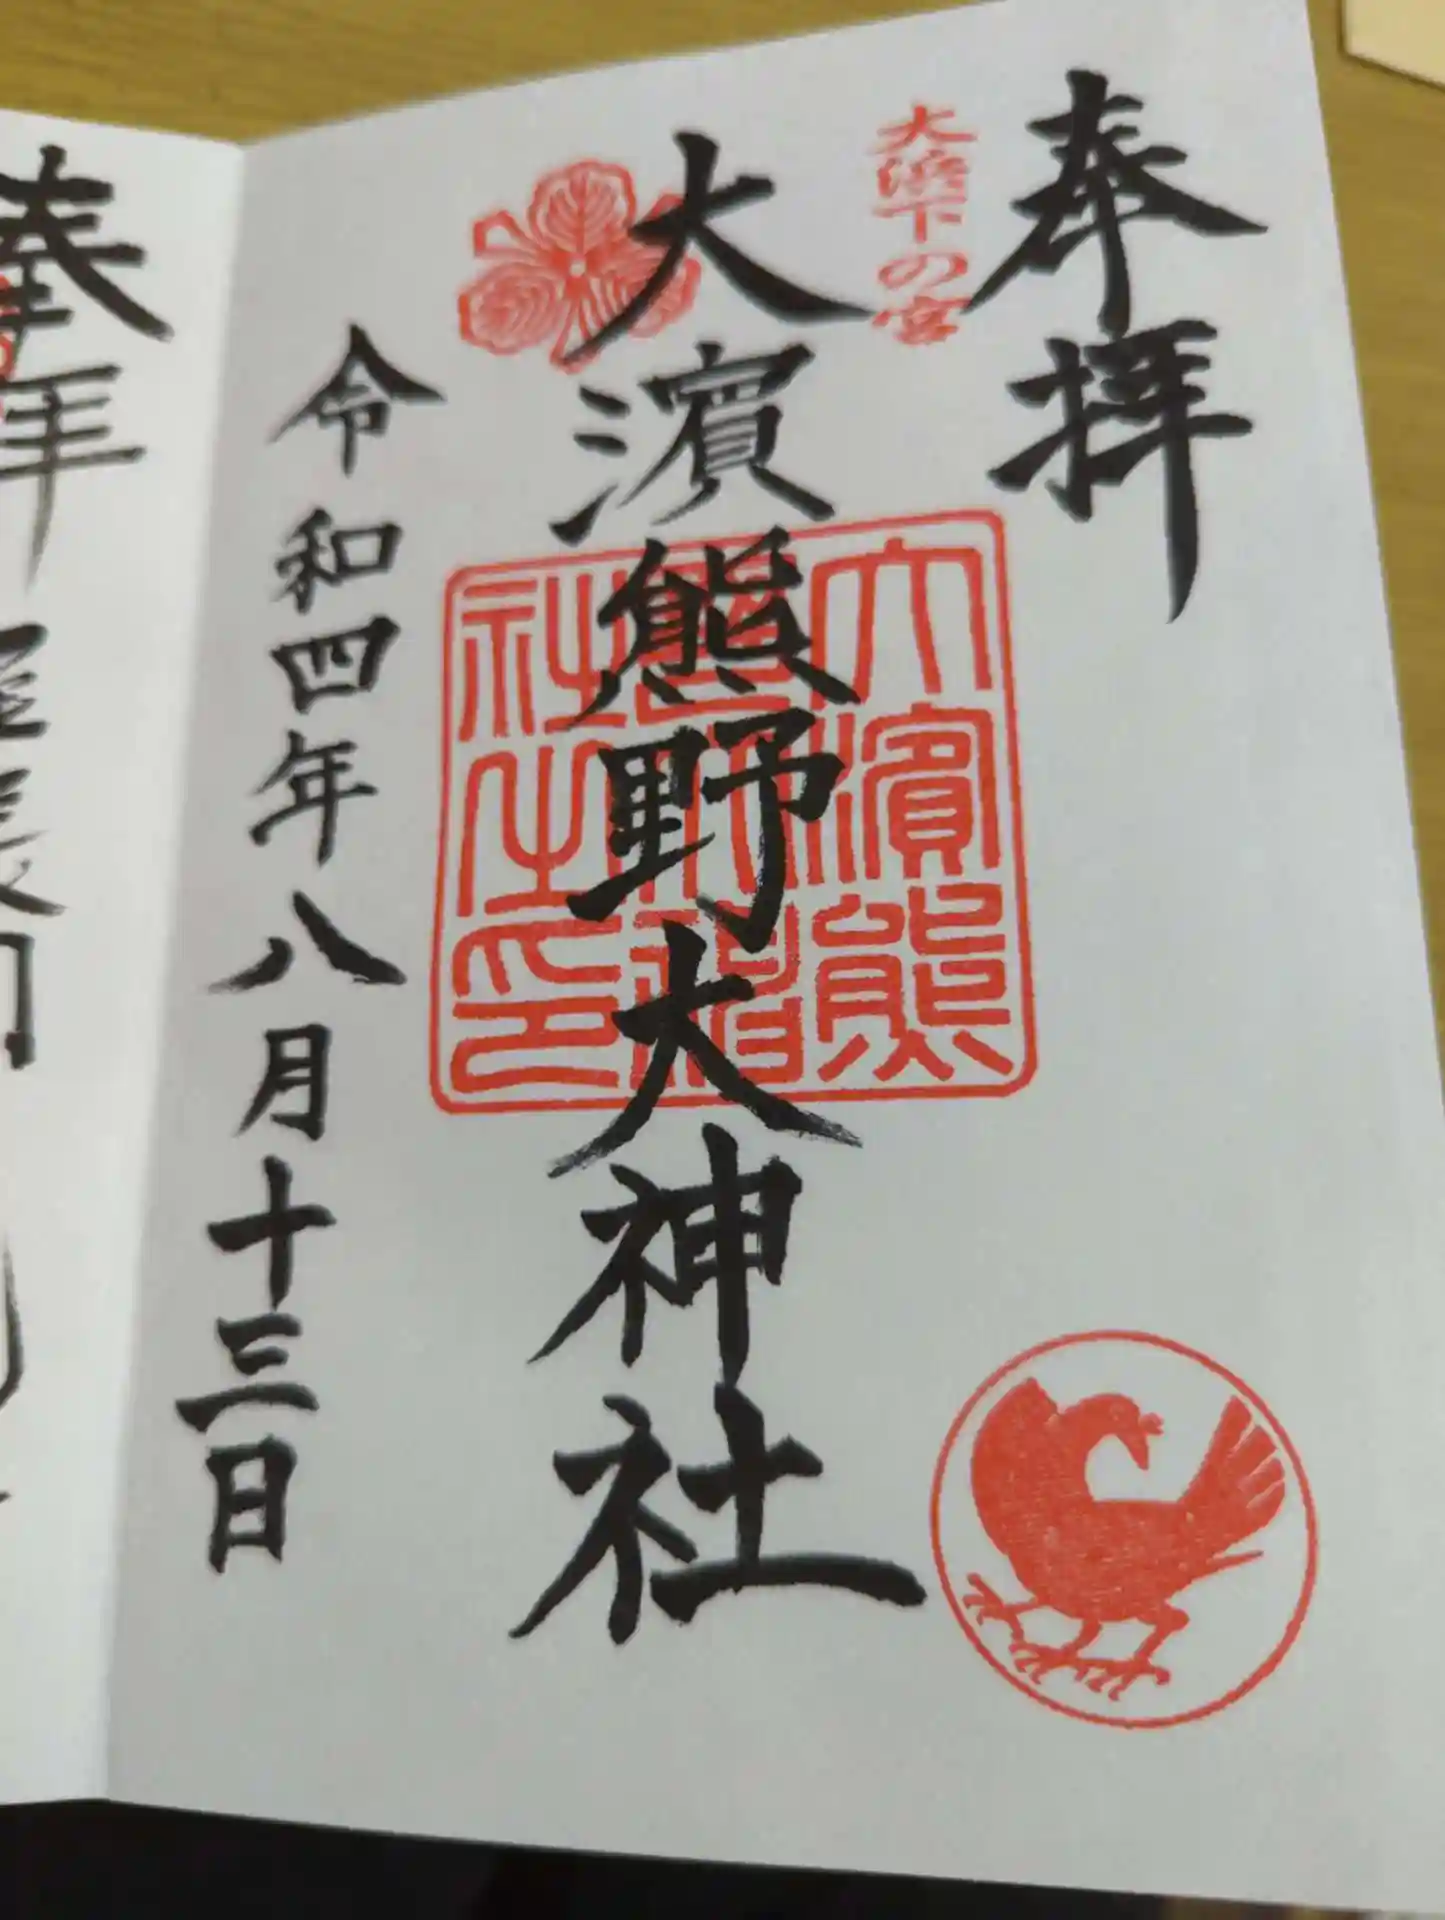 奉拝
大濱下の宮
大濱熊野大神社
大濱熊
野大神
社之印
令和四年八月十三日
奉拝